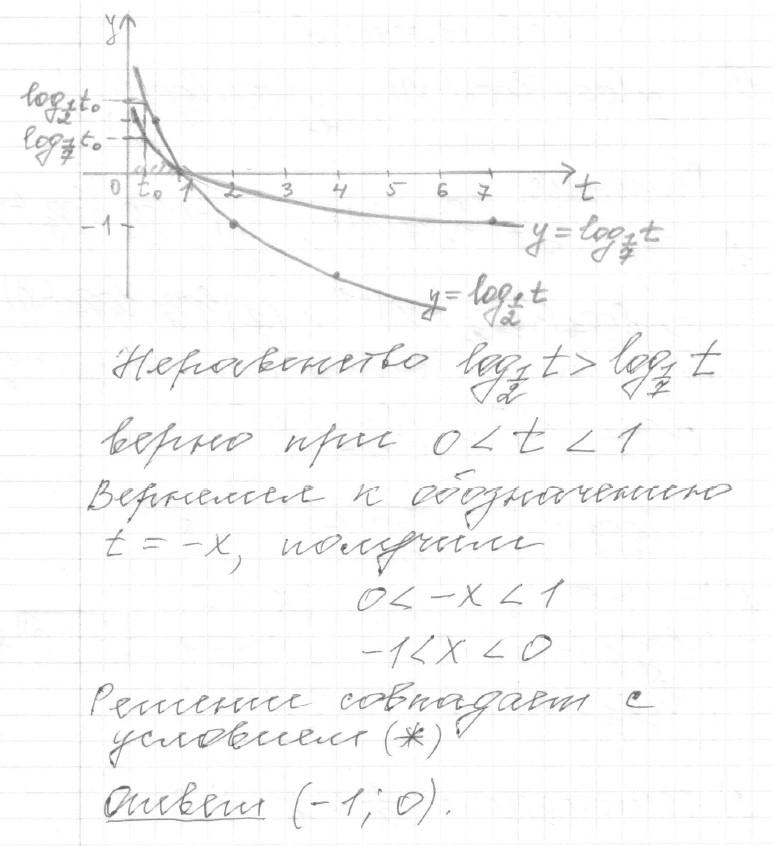 y
log_{1/2} t₀
log_{1/7} t₀
0 t₀ 1 2 3 4 5 6 7 t
-1
y = log_{1/7} t
y = log_{1/2} t
Неравенство log_{1/2} t > log_{1/7} t
верно при 0 < t < 1
Вернемся к обозначению
t = -x, получим
0 < -x < 1
-1 < x < 0
Решение совпадает с
условием (*)
Ответ (-1; 0).